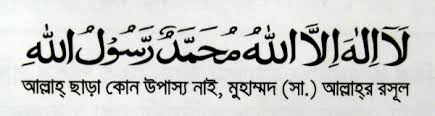 لَا اِلٰهَ اِلَّا اللهُ مُحَمَّدٌ رَّسُوْلُ اللهِ
আল্লাহ্ ছাড়া কোন উপাস্য নাই, মুহাম্মদ (সা.) আল্লাহ্‌র রসূল